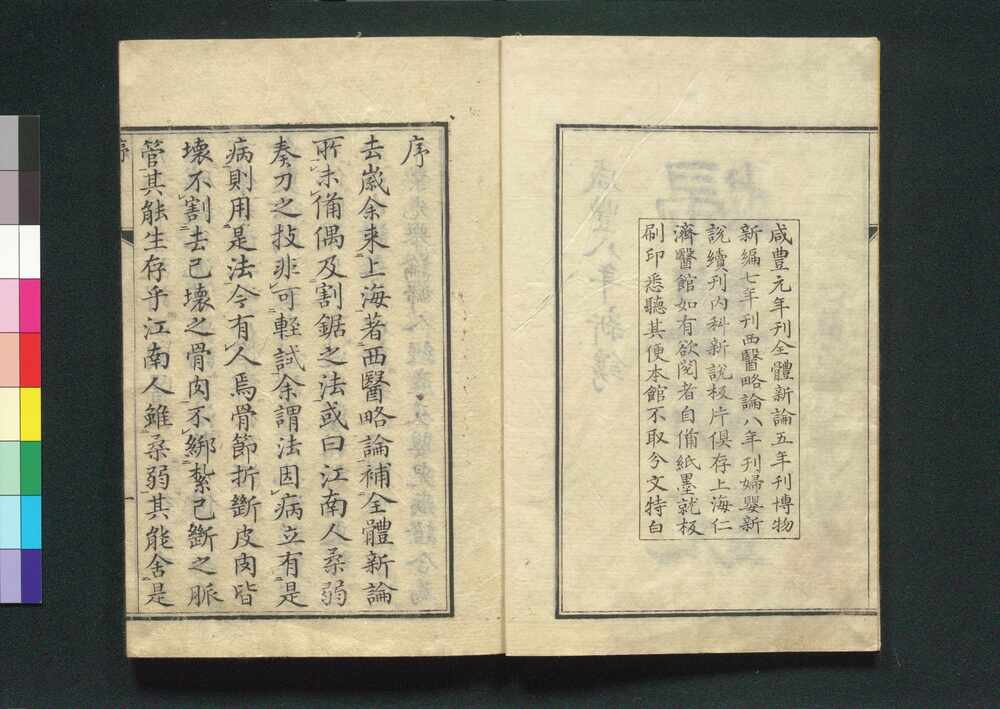 咸豊元年刊全體新論五年刊博物
新編七年刊西醫略論八年刊婦嬰新
說續刊內科新說板片俱存上海仁
濟醫館如有欲閱者自備紙墨就板
刷印悉聽其便本館不取分文特白
序
去嵗余来上海著西醫略論補全體新論
所未備偶及割鋸之法或曰江南人柔弱
奏刀之技非可輕試余謂法因病立有是
病則用是法今有人焉骨節折斷皮肉皆
壞不割去已壞之骨肉不綁紮已斷之脈
管其能生存乎江南人雖柔弱其能舍是
序
一